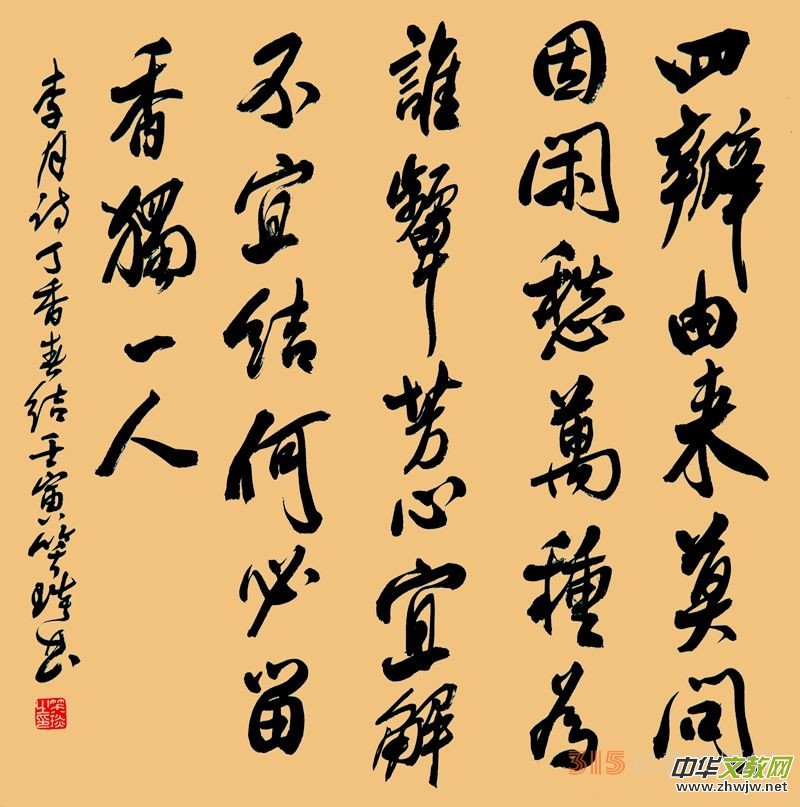 四瓣由来莫问
因闲愁萬種為
誰颦芳心宜解
不宜结何必留
香獨一人
李月诗丁香春结壬寅笑琰书
315
中华文教网
www.zhwjw.net